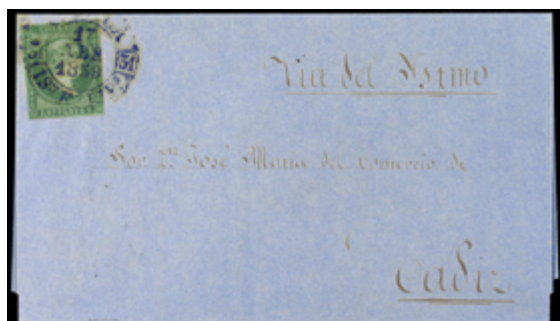 17
1858
Via del Ysmo
Sor Dn José Maria del Comercio de
Cadiz